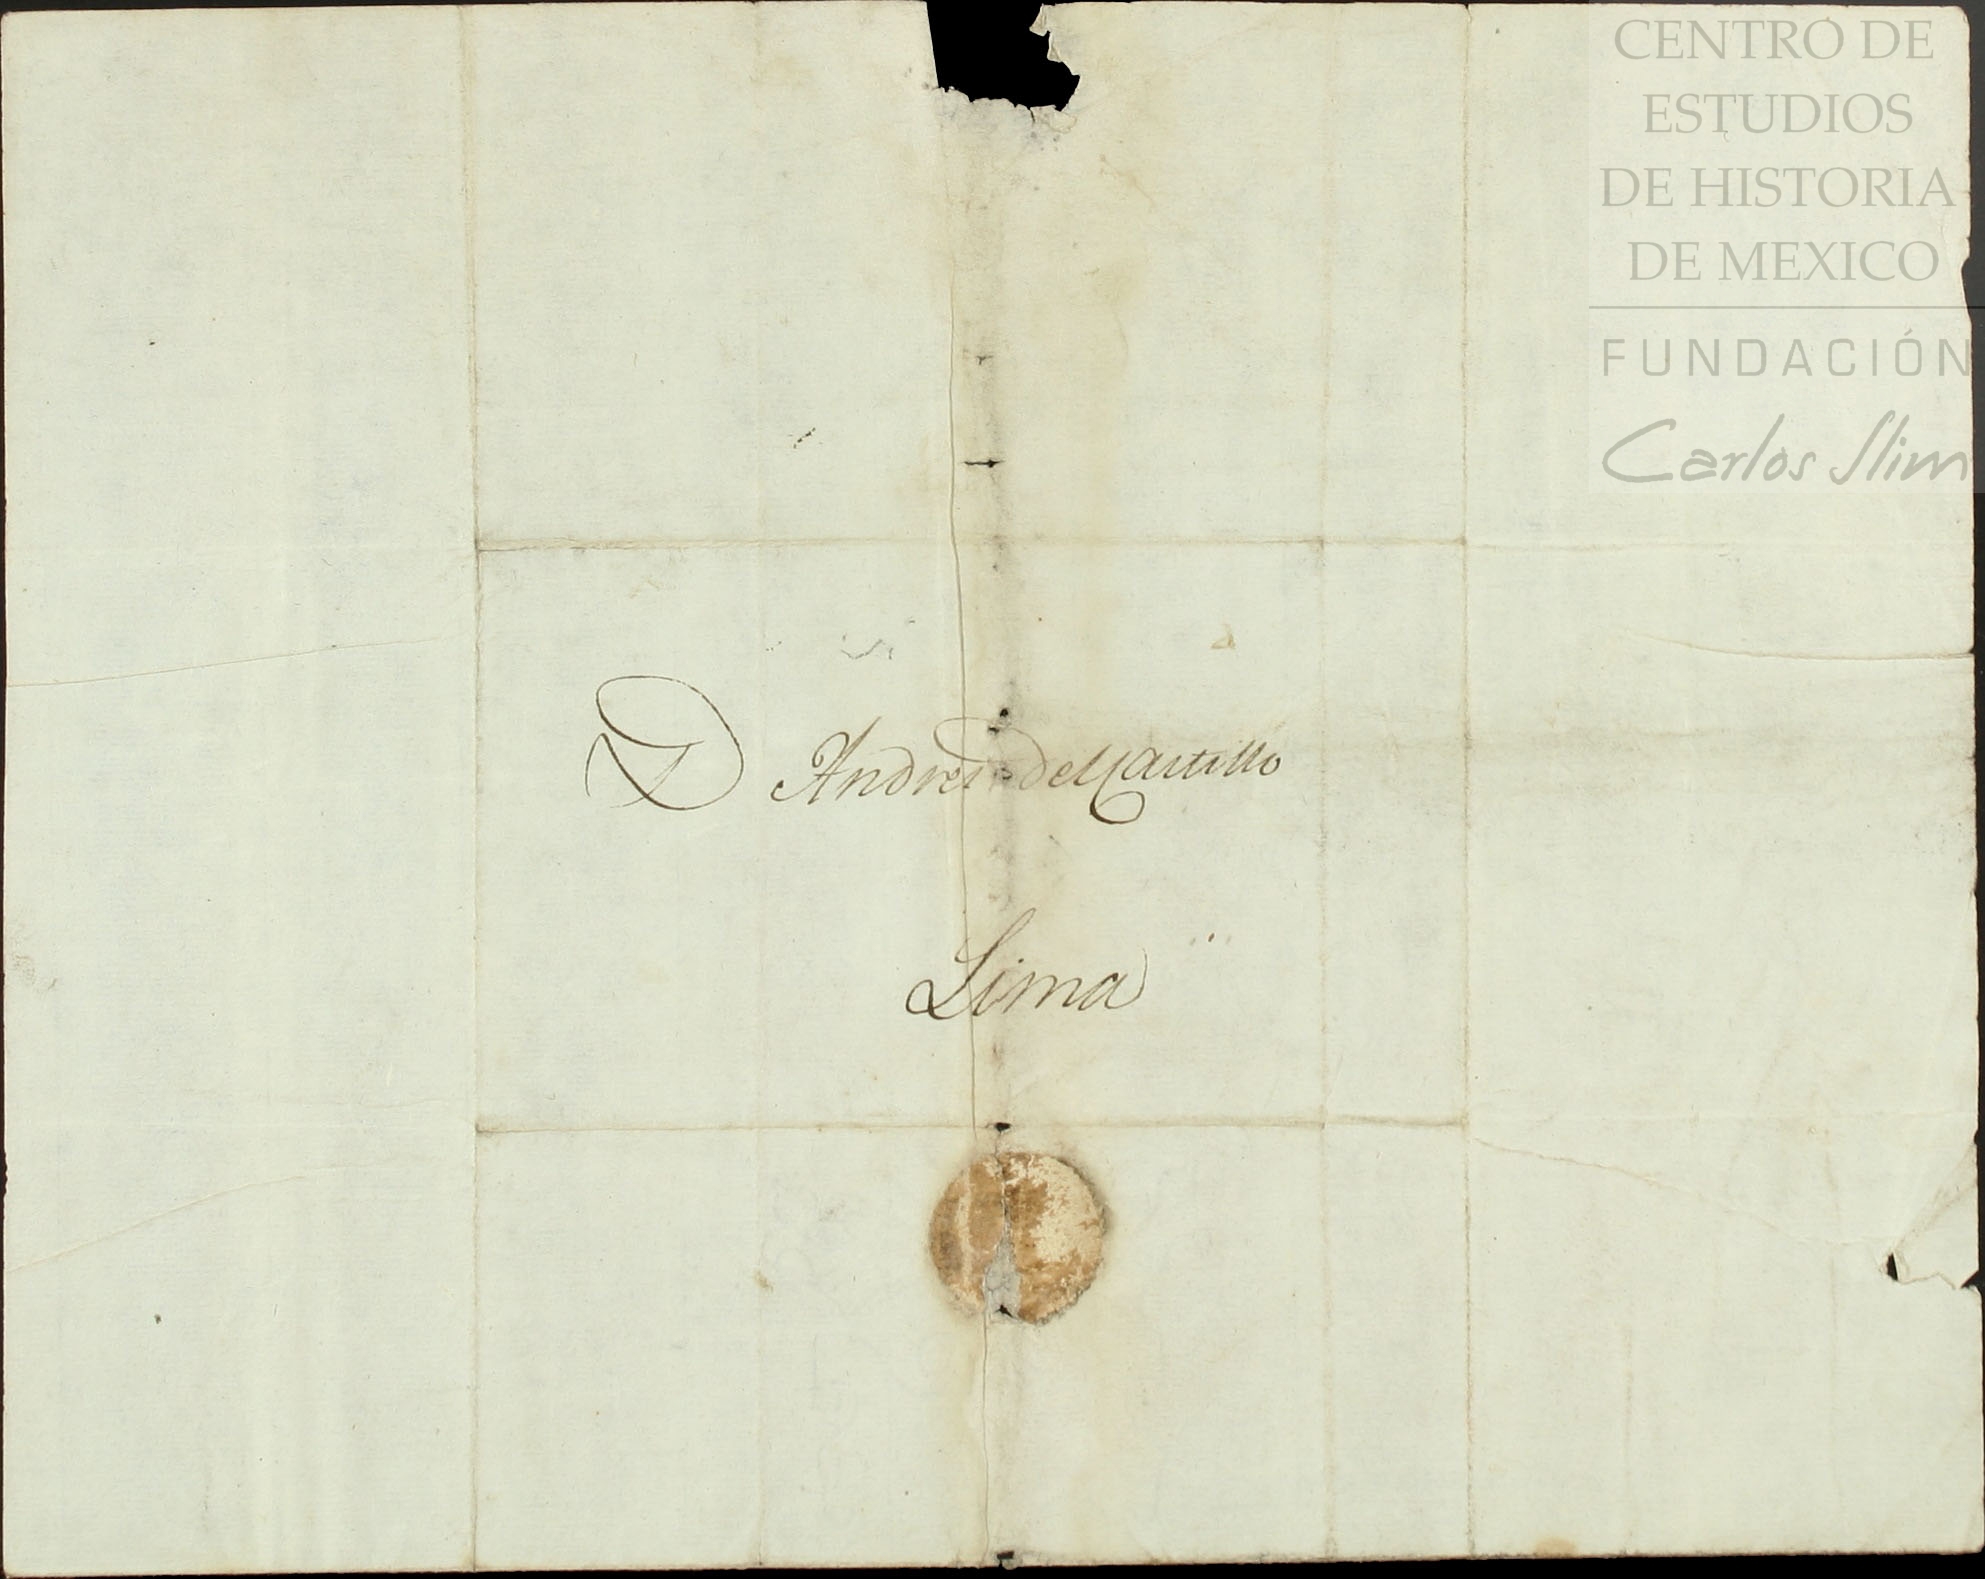 CENTRO DE
ESTUDIOS
DE HISTORIA
DE MEXICO
FUNDACIÓN
Carlos Slim
D Andres del Castillo
Lima